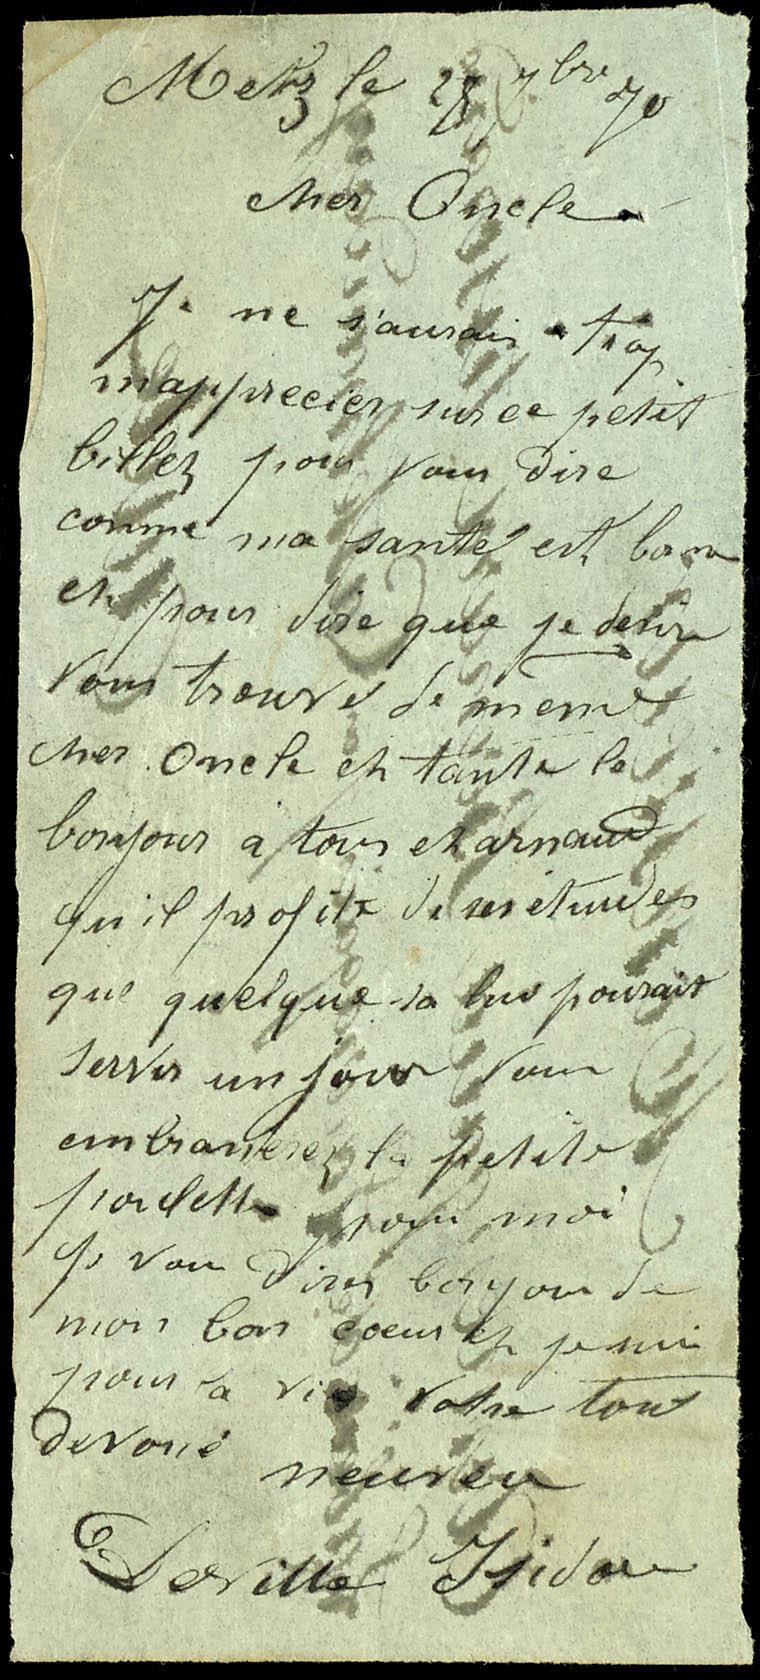 Metz le 28 7bre 70
cher Oncle
Je ne s'aurais trop
m'apprecier sur ce petit
billez pour vous dire
comme ma santé est bonne
et pour dire que je desire
vous trouver de meme
cher Oncle et tante le
bonjour à tous et arnaud
qu'il profite de ses études
que quelque sa lui pourait
servir un jour vous
embrasserez la petite
poulette pour moi
Je vous dires bonjour de
mon bon coeur et je suis
pour la vie votre tout
devoué
neuveu
Derville Isidore